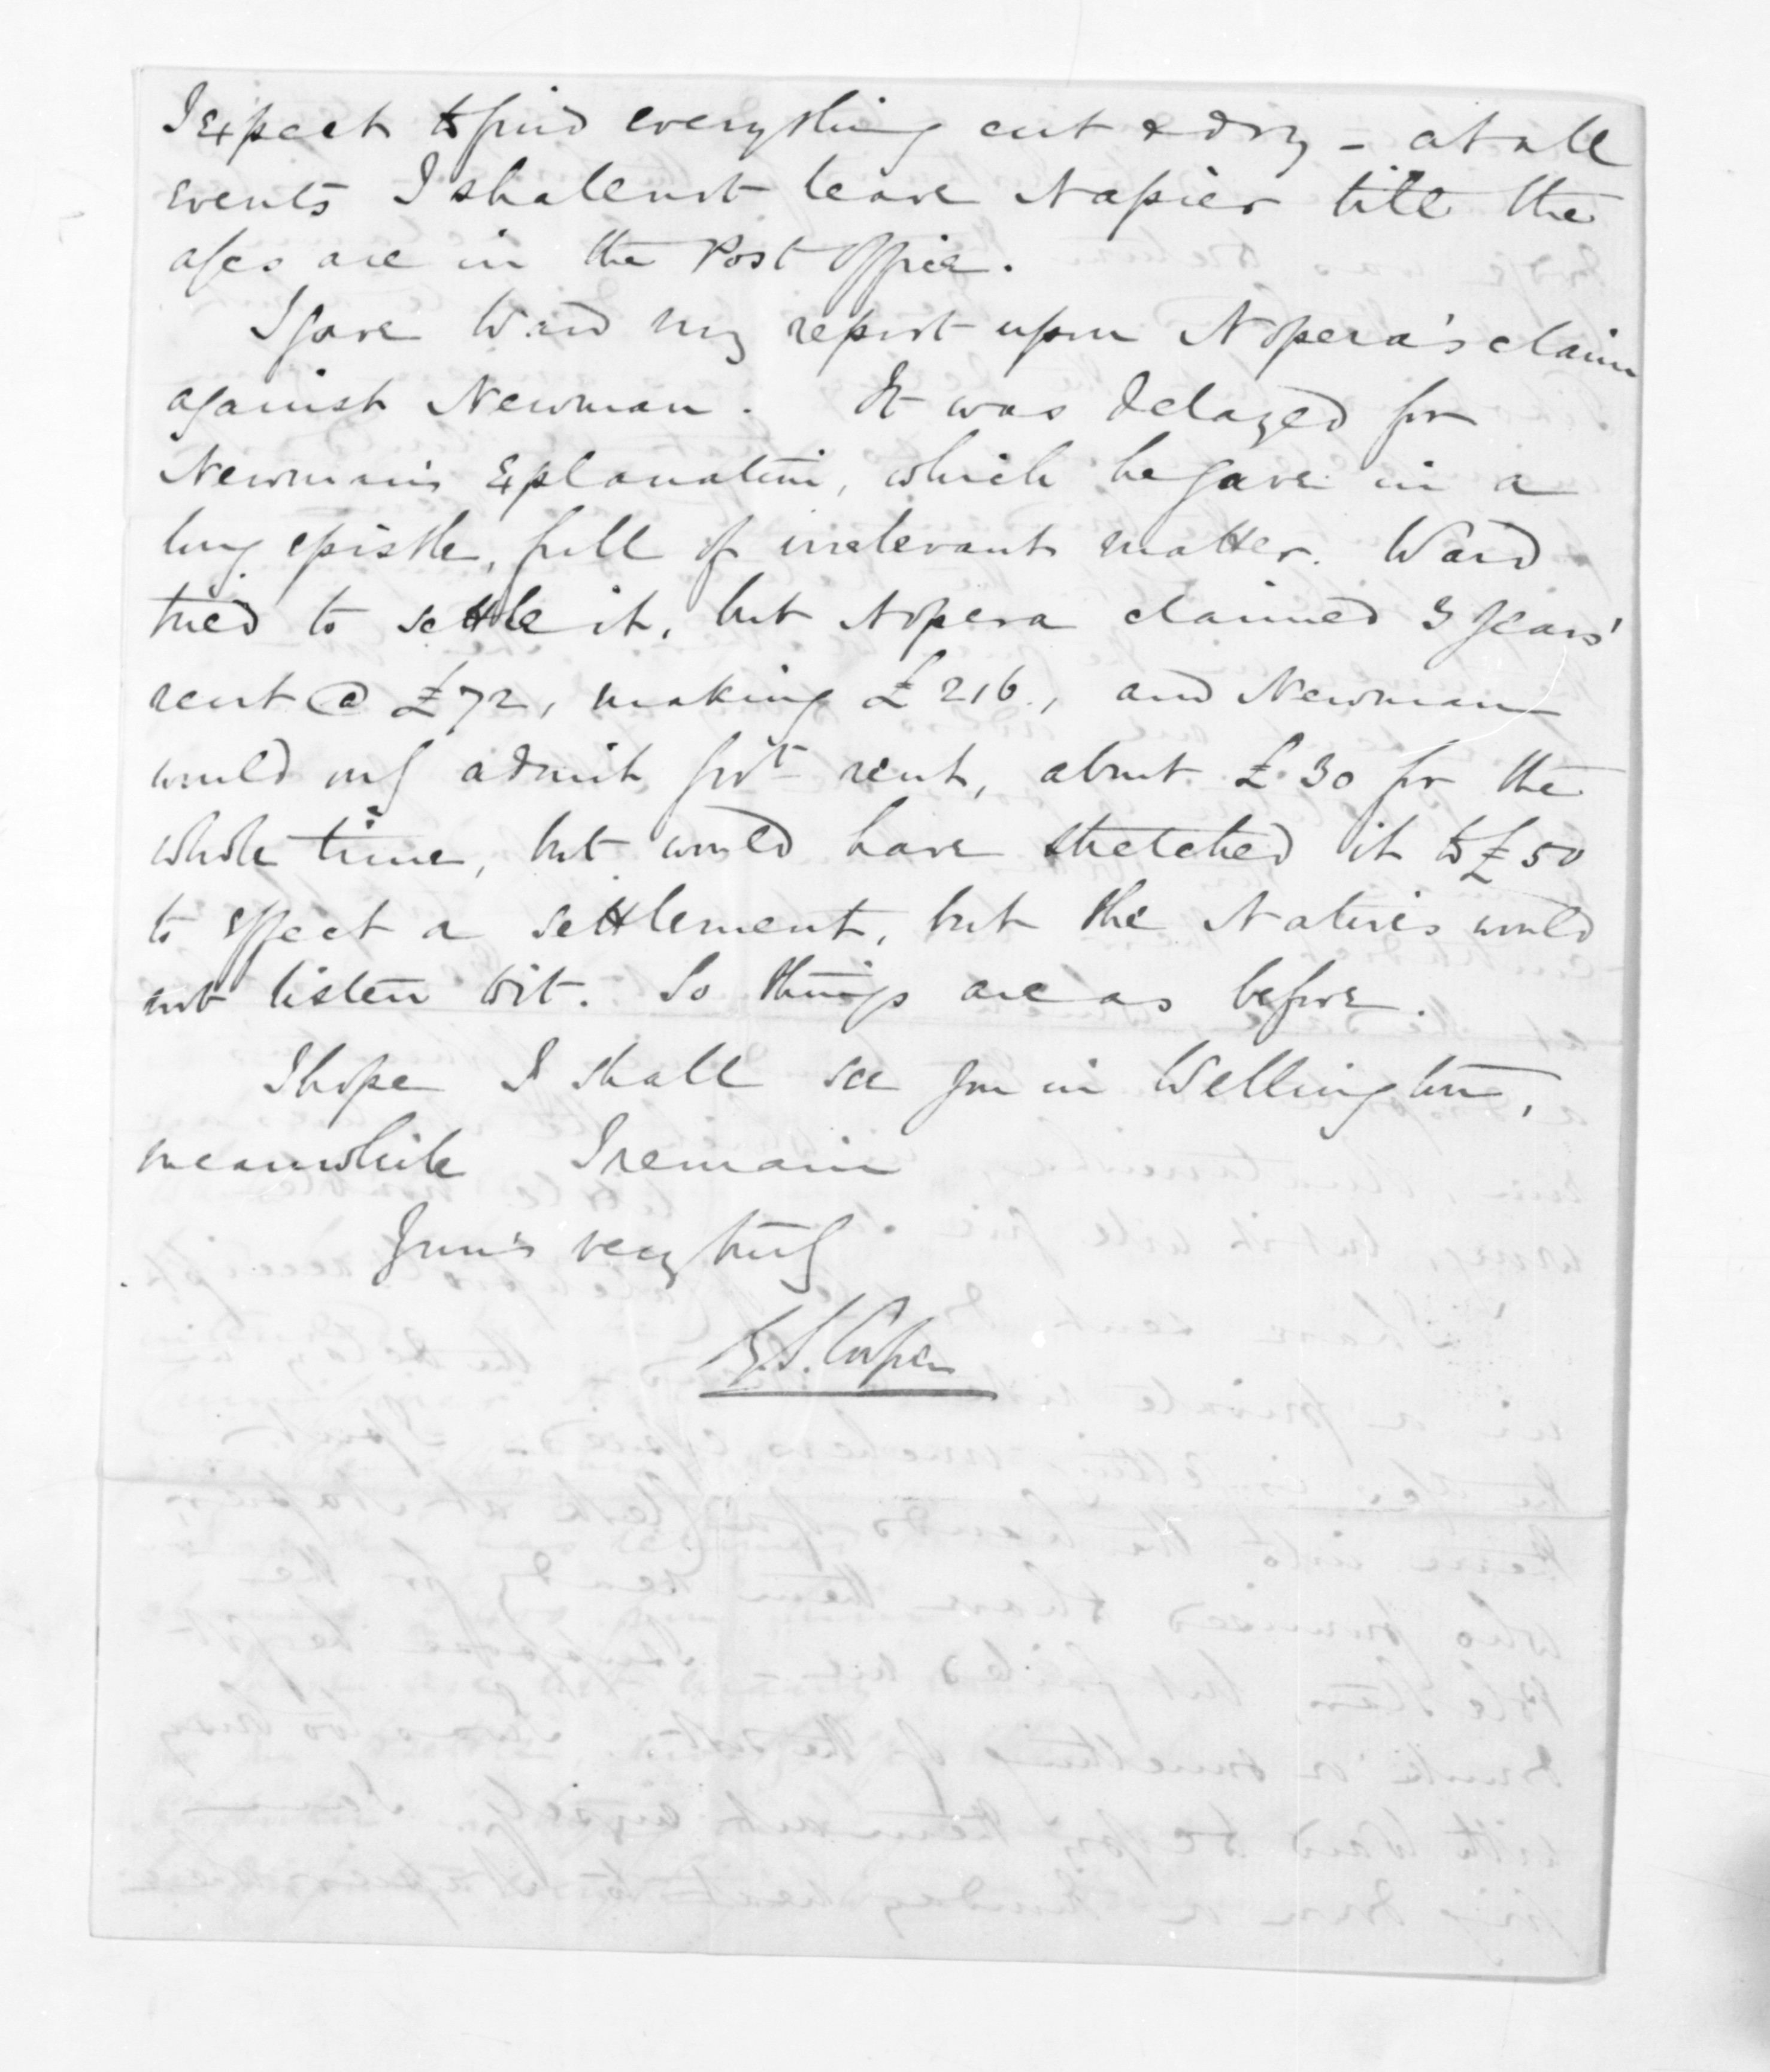 I expect to find everything cut & dry - at all
events I shall not leave Napier till the
a/cs are in the Post Office.
I gave Ward my report upon Nopera's claim
against Newman. It was delayed for
Newman's explanation, which he gave in a
long epistle, full of irrelevant matter. Ward
tried to settle it, but Nopera claimed 3 years'
rent @ £72, making £216., and Newman
would only admit gov.t rent, about £30 for the
whole time, but would have stretched it to £50
to effect a settlement, but the Natives would
not listen to it. So things are as before.
I hope I shall see you in Wellington,
meanwhile I remain
Yours very truly
G.S. Cooper